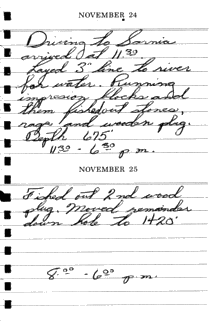 NOVEMBER 24
Driving to Sarnia
arrived at 11 30
layed 3" line to river
for water. Running
impression blocks and
them fished out stones,
rags and wooden plug.
Depth 675'
11 30 - 6 30 p.m.
NOVEMBER 25
Fished out 2nd wood
plug. Moved remainder
down hole to 1420'
8.00 - 6 00 p.m.